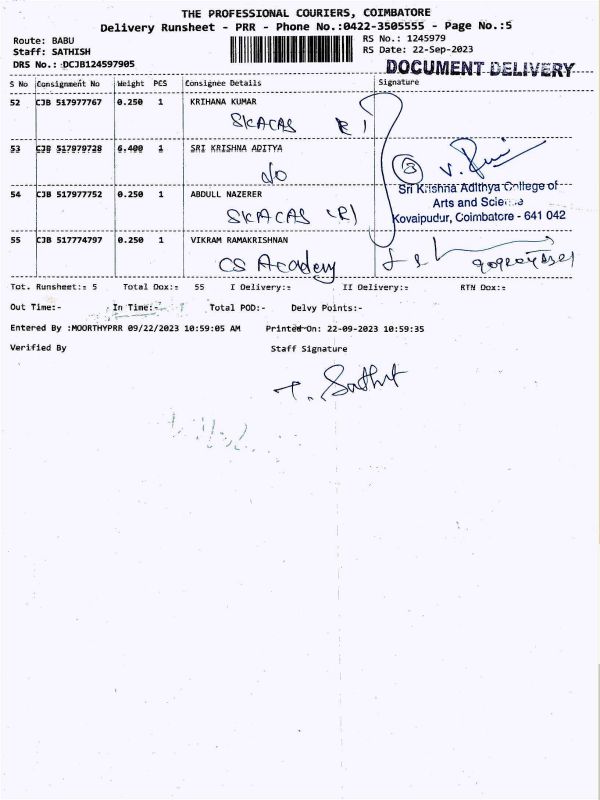 THE PROFESSIONAL COURIERS, COIMBATORE
Delivery Runsheet - PRR - Phone No.:0422-3505555 - Page No.:5
Route: BABU RS No.: 1245979
Staff: SATHISH RS Date: 22-Sep-2023
DRS No.: DCJB124597905 DOCUMENT DELIVERY
S No Consignment No Weight PCS Consignee Details Signature
52 CJB 517977767 0.250 1 KRIHANA KUMAR
SKACAS
53 CJB 517979728 6.400 1 SRI KRISHNA ADITYA
54 CJB 517977752 0.250 1 ABDULL NAZERER
SKACAS (R)
Sri Krishna Adithya College of
Arts and Science
Kovaipudur, Coimbatore - 641 042
55 CJB 517774797 0.250 1 VIKRAM RAMAKRISHNAN
CS Academy
Tot. Runsheet:= 5 Total Dox:= 55 I Delivery:= II Delivery:= RTN Dox:=
Out Time:- In Time:- Total POD:- Delvy Points:-
Entered By :MOORTHYPRR 09/22/2023 10:59:05 AM Printed On: 22-09-2023 10:59:35
Verified By Staff Signature
T. Sathis